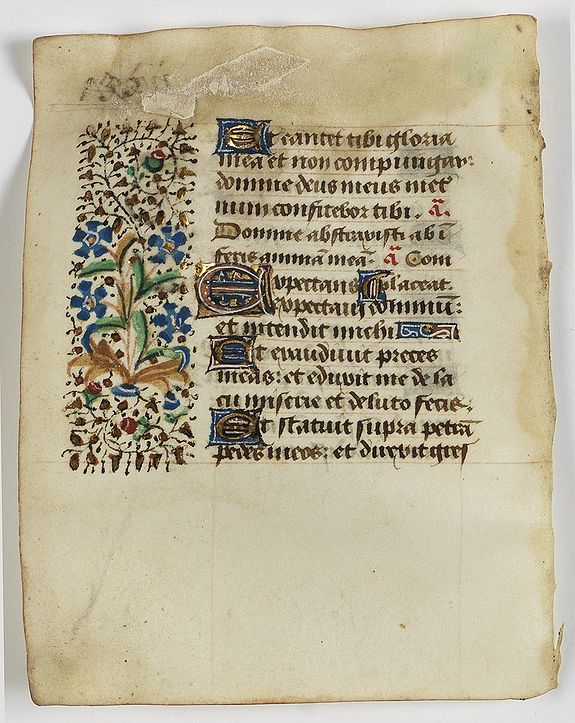 Et cantet tibi gloria
mea et non compungar:
domine deus meus in et
num confitebor tibi. a.
Domine abstraxisti ab i
feris anima mea. a Com
Expectans placeat.
expectaui dominum:
et intendit michi
Et exaudiuit preces
meas: et eduxit me de la
cu miserie et de luto fecis.
Et statuit supra petrā
pedes meos: et direxit gres